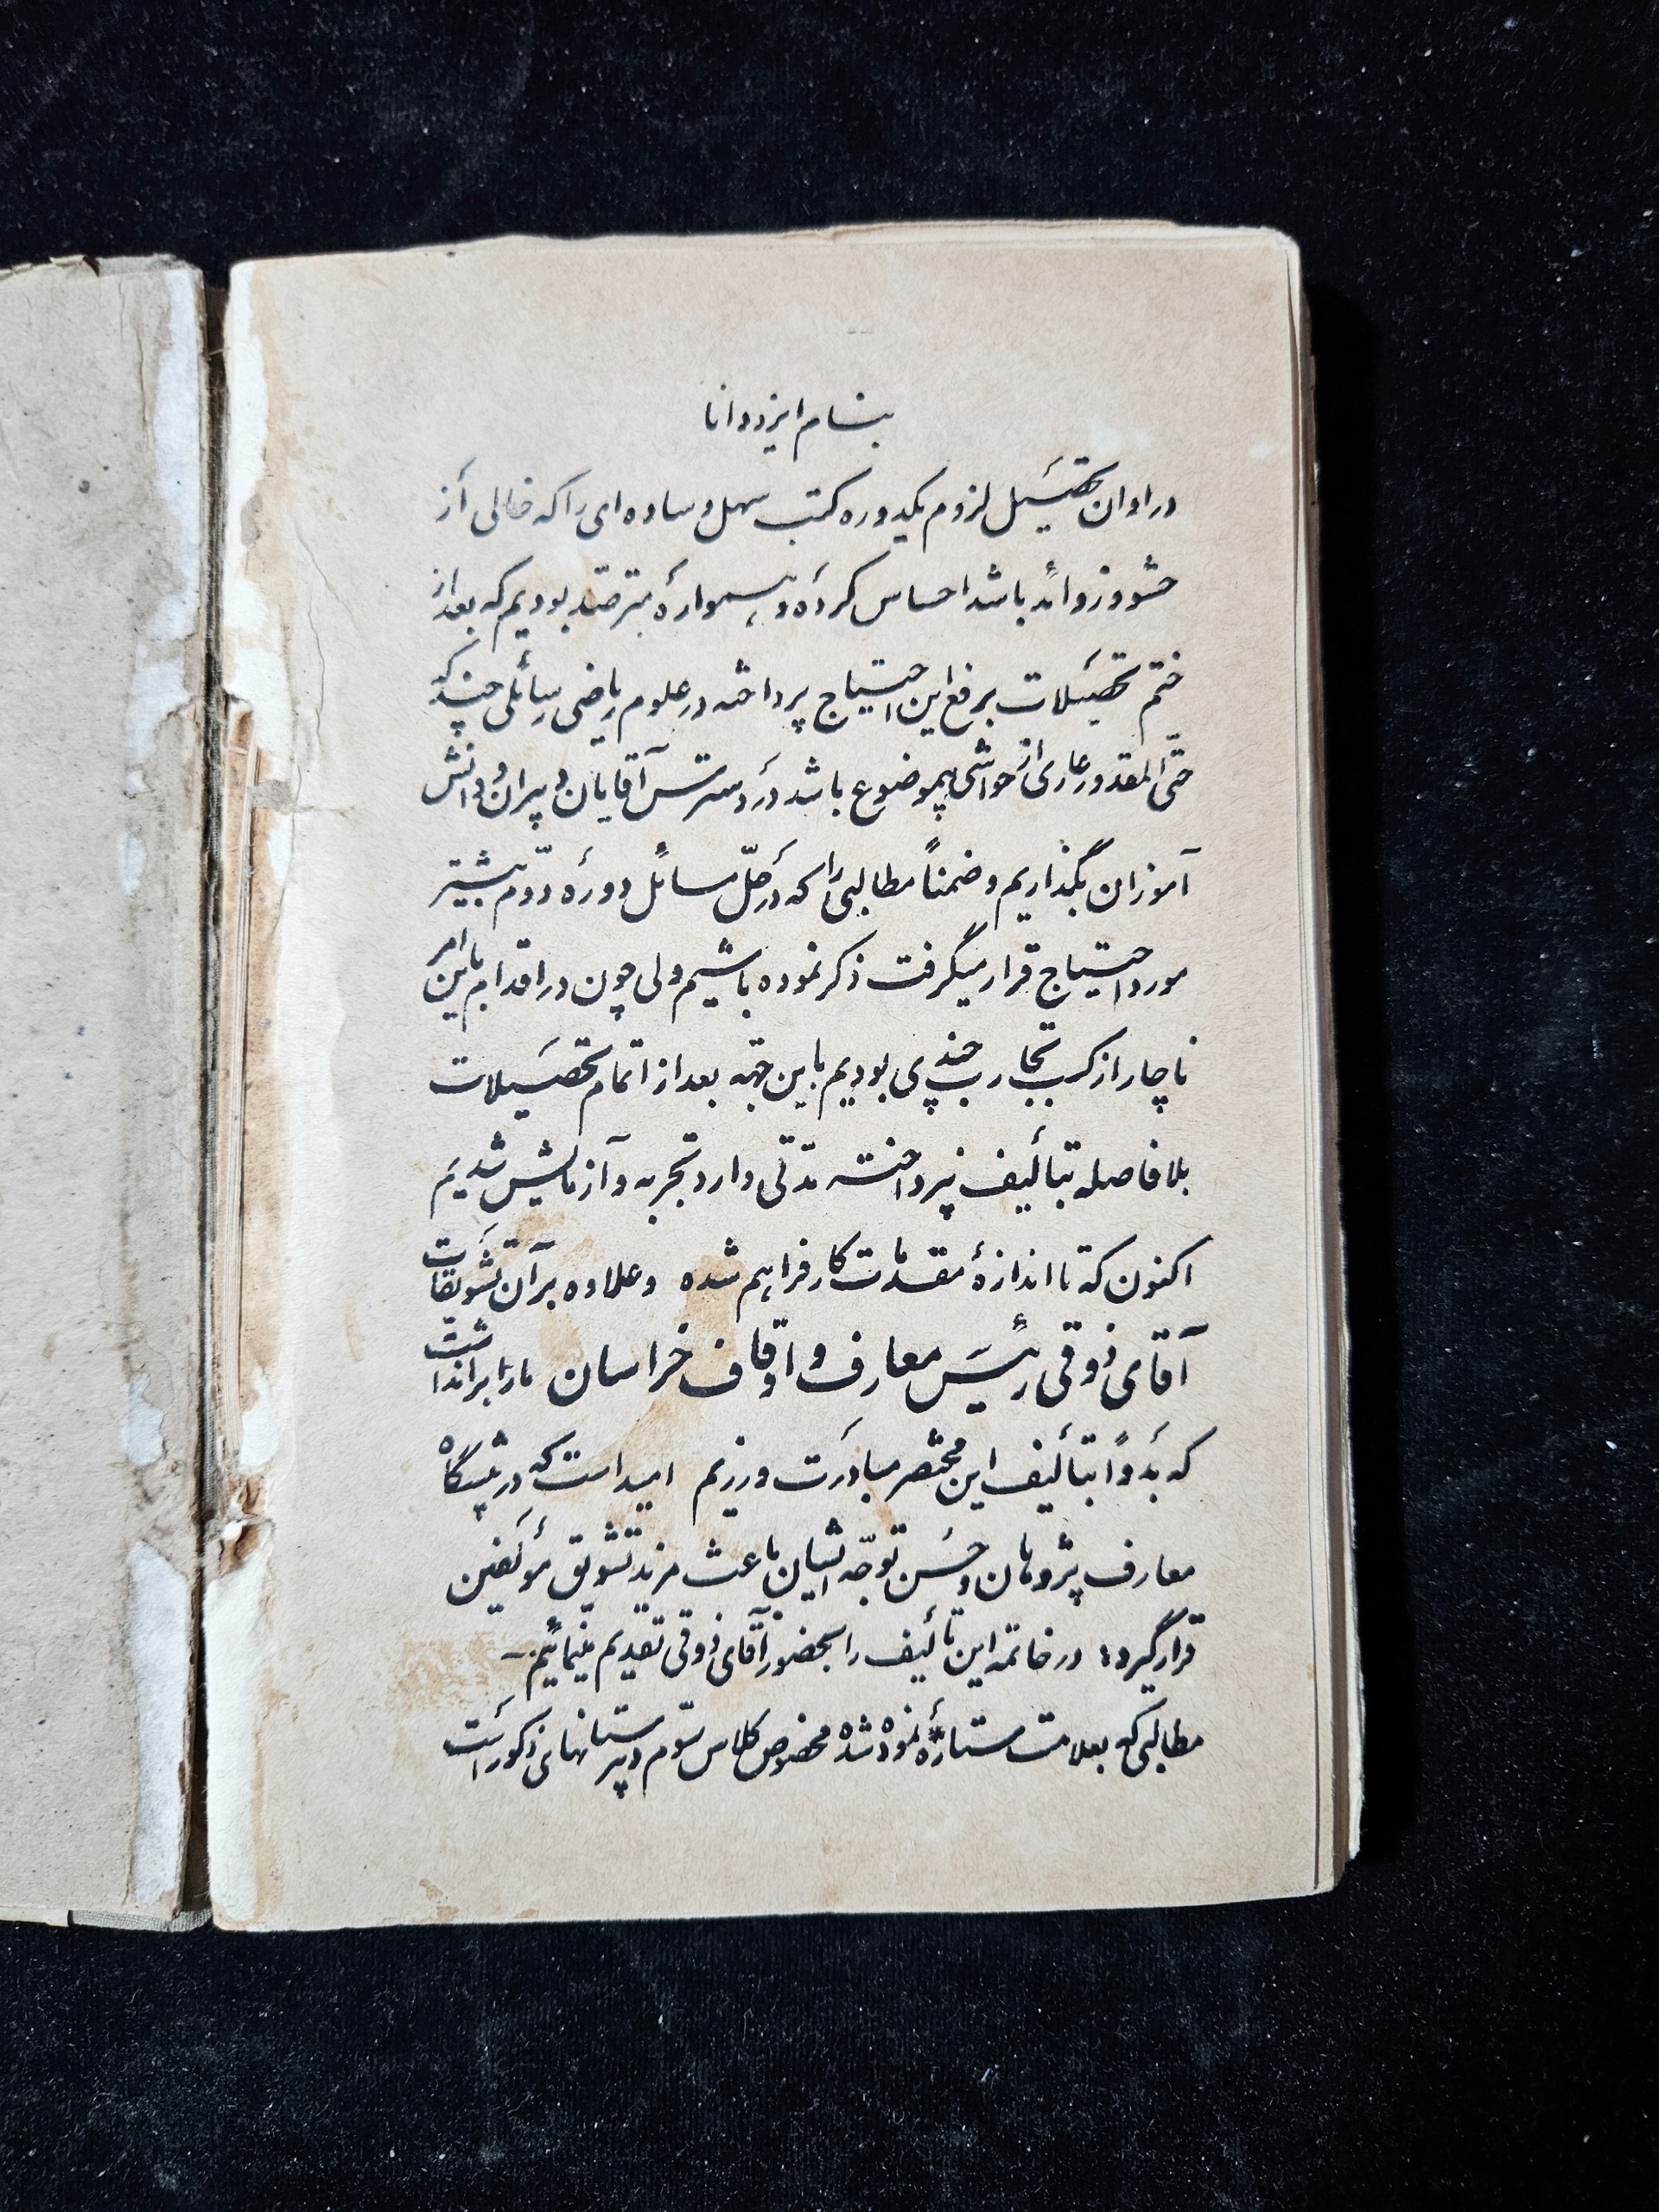 بنام ایزد دانا
در اوان تحصیل لزوم یکدوره کتب سهل و ساده ای را که خالی از
حشو و زوائد باشد احساس کرده و همواره مترصد بودیم که بعد از
ختم تحصیلات برفع این احتیاج پرداخته در علوم ریاضی رسائلی چند که
حتی المقدور عاری از حواشی بیموضوع باشد در دسترس آقایان دبیران و دانش
آموزان بگذاریم و ضمناً مطالبی را که در حلّ مسائل دورۀ دوّم بیشتر
مورد احتیاج قرار میگرفت ذکر نموده باشیم ولی چون در اقدام باین امر
ناچار از کسب تجارب چندی بودیم باین جهة بعد از اتمام تحصیلات
بلافاصله بتألیف نپرداخته مدّتی وارد تجربه و آزمایش شدیم
اکنون که تا اندازۀ مقدمات کار فراهم شده و علاوه بر آن تشویقات
آقای ذوقی رئیس معارف و اوقاف خراسان ما را بر آنداشت
که بَدواً بتألیف این مختصر مبادَرت ورزیم امید است که در پیشگاه
معارف پژوهان و حُسن توجّه ایشان باعث مزید تشویق مؤلفین
قرار گیرد؛ در خاتمه این تألیف را بحضور آقای ذوقی تقدیم مینمائیم -
مطالبی که بعلامت ستاره * نموده شده مخصوص کلاس سوّم دبیرستانهای ذکور است